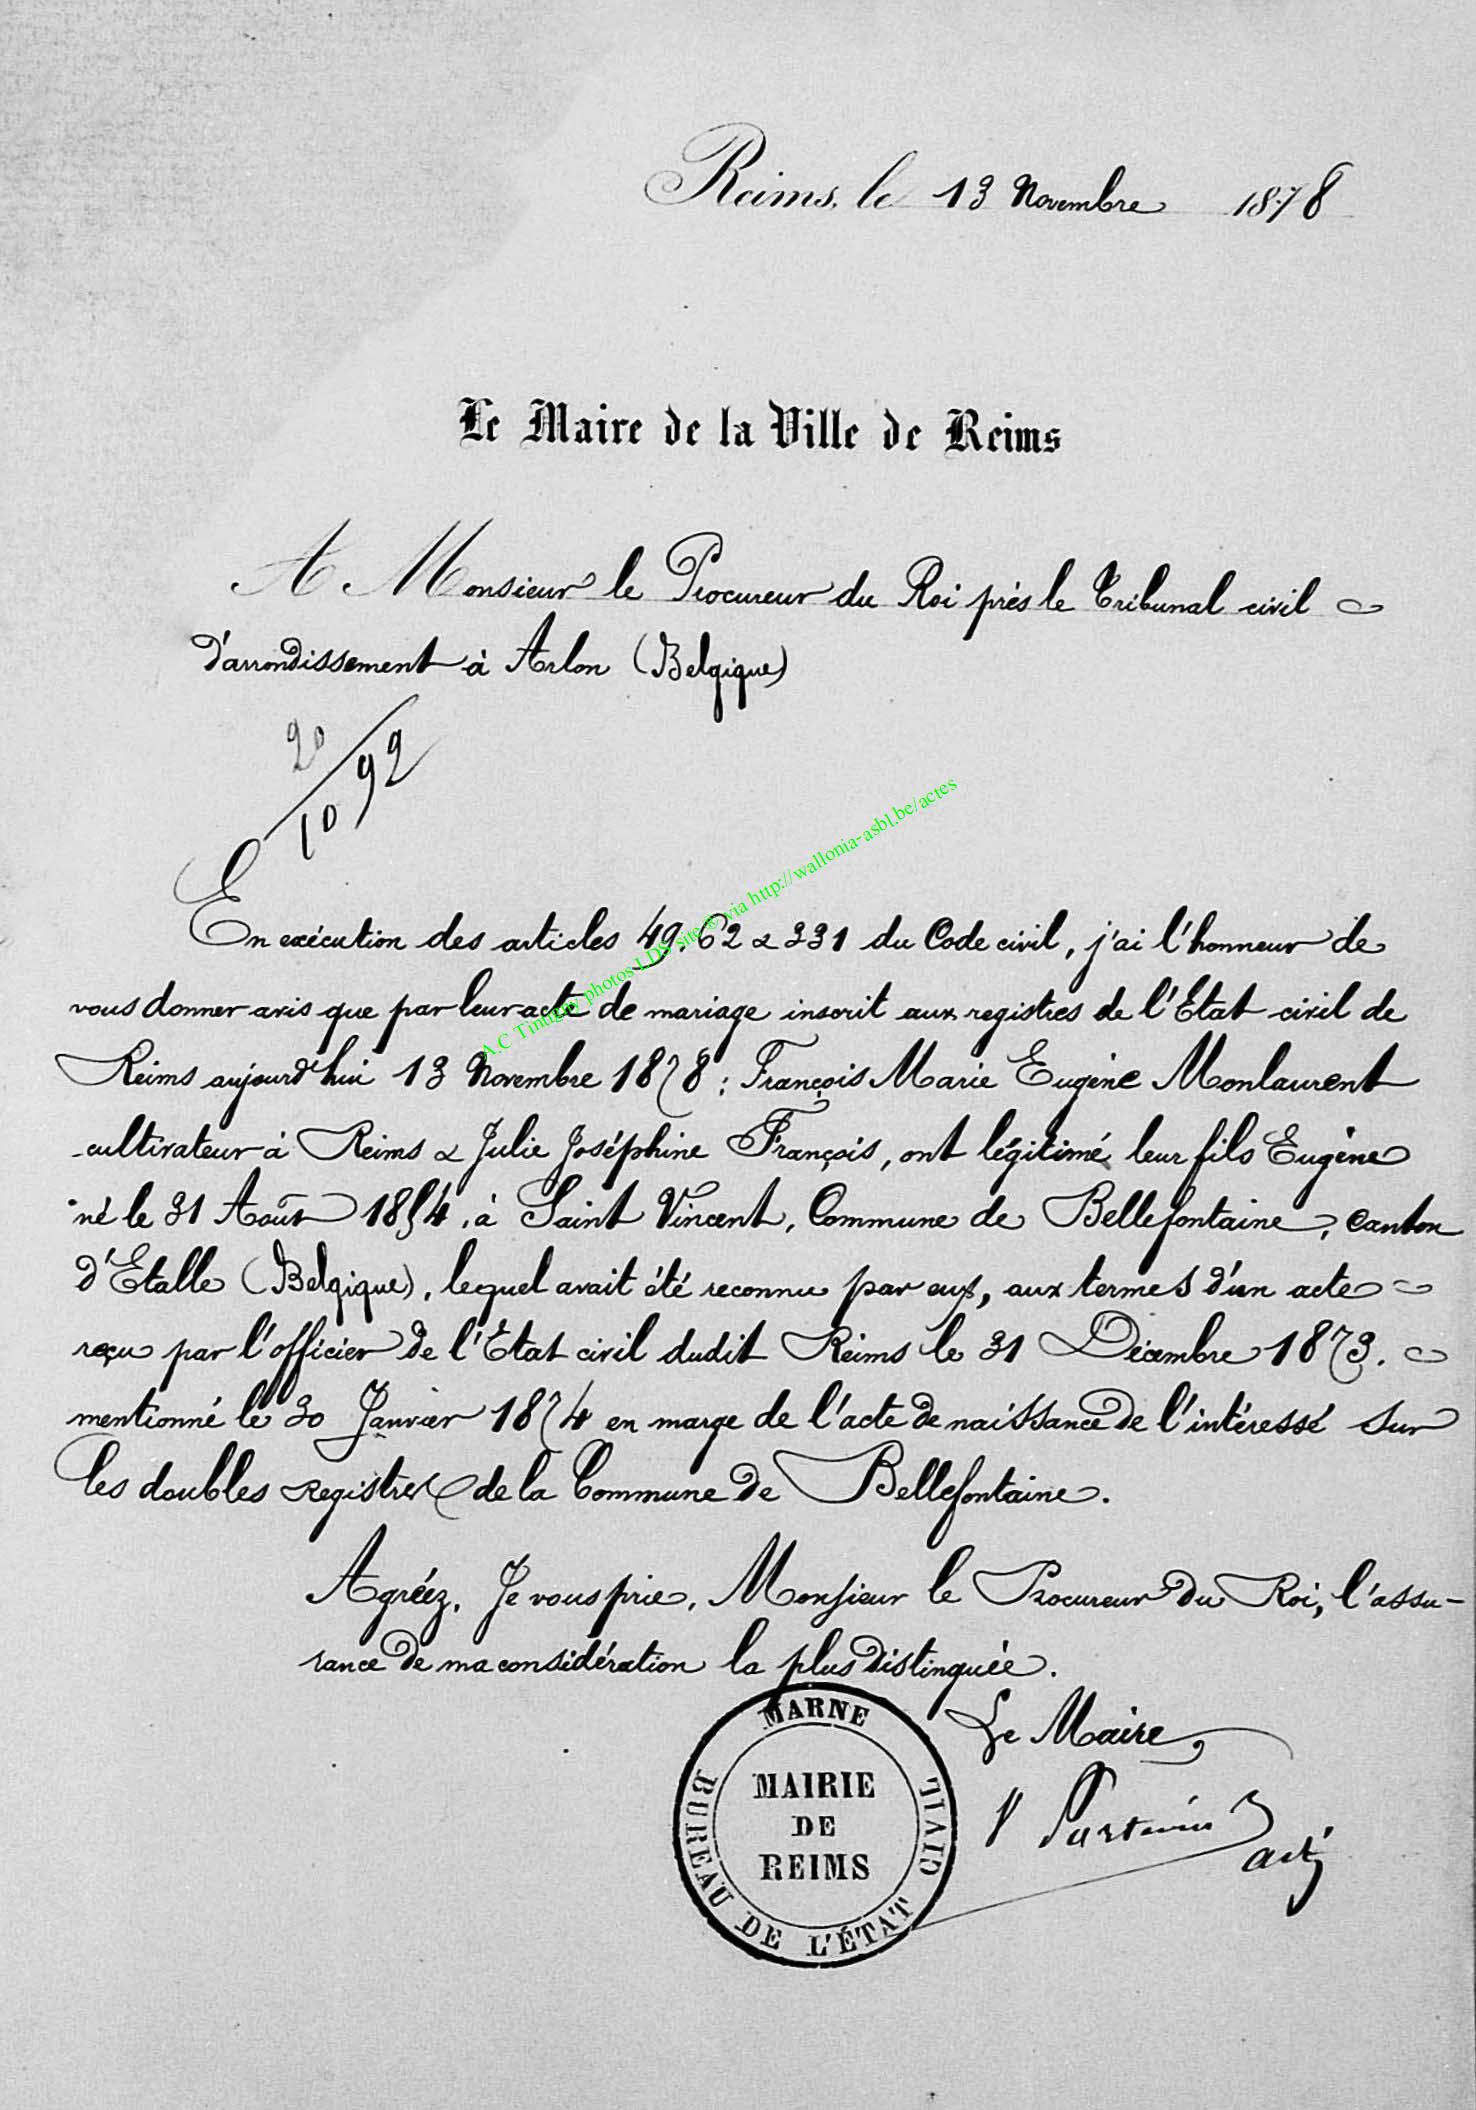 Reims, le 13 Novembre 1878
Le Maire de la Ville de Reims
A Monsieur le Procureur du Roi près le Tribunal civil
d'arrondissement à Arlon (Belgique)
20
10 92
En exécution des articles 49. 62 & 331 du Code civil, j'ai l'honneur de
vous donner avis que par leur acte de mariage inscrit aux registres de l'Etat civil de
Reims aujourd'hui 13 Novembre 1878 : François Marie Eugène Monlaurent
cultivateur à Reims & Julie Joséphine François, ont légitimé leur fils Eugène
né le 31 Août 1854, à Saint Vincent, Commune de Bellefontaine, canton
d'Etalle (Belgique), lequel avait été reconnu par eux, aux termes d'un acte
reçu par l'officier de l'Etat civil dudit Reims le 31 Décembre 1873.
mentionné le 30 Janvier 1874 en marge de l'acte de naissance de l'intéressé sur
les doubles registres de la Commune de Bellefontaine.
Agréez, Je vous prie, Monsieur le Procureur du Roi, l'assu-
rance de ma considération la plus distinguée.
Le Maire,
adj
MARNE
MAIRIE
DE
REIMS
BUREAU DE L'ÉTAT CIVIL
A.C Tintigny photos LDS site ® via http://wallonia-asbl.be/actes